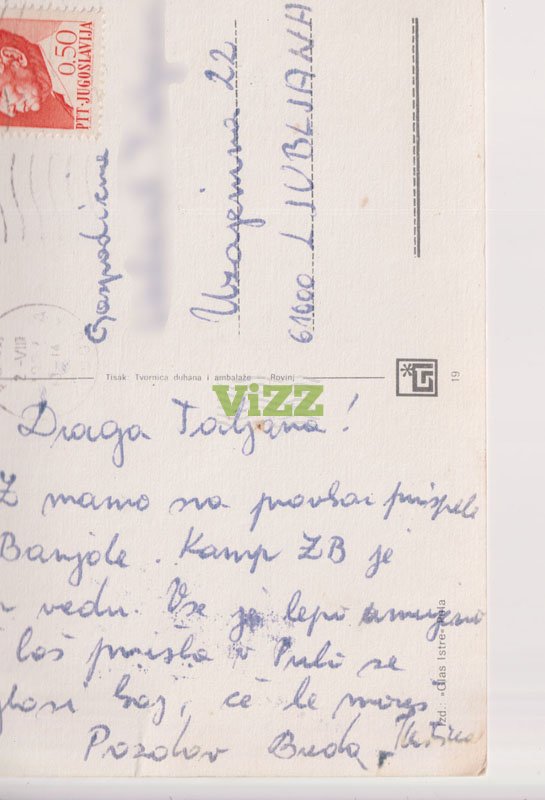 0.50
PTT-JUGOSLAVIJA
Gospodična
Vzajemna 22
61000 LJUBLJANA
VIII
Tisak: Tvornica duhana i ambalaže Rovinj
19
ViZZ
Draga Tatjana!
Z mamo sva prispele
Banjole. Kamp ZB je
redu. Vse je lepo urejeno
boš prišla v Pulo se
kaj, če le moreš
Pozdrav Breda,
Izd.: »Glas Istre« Pula